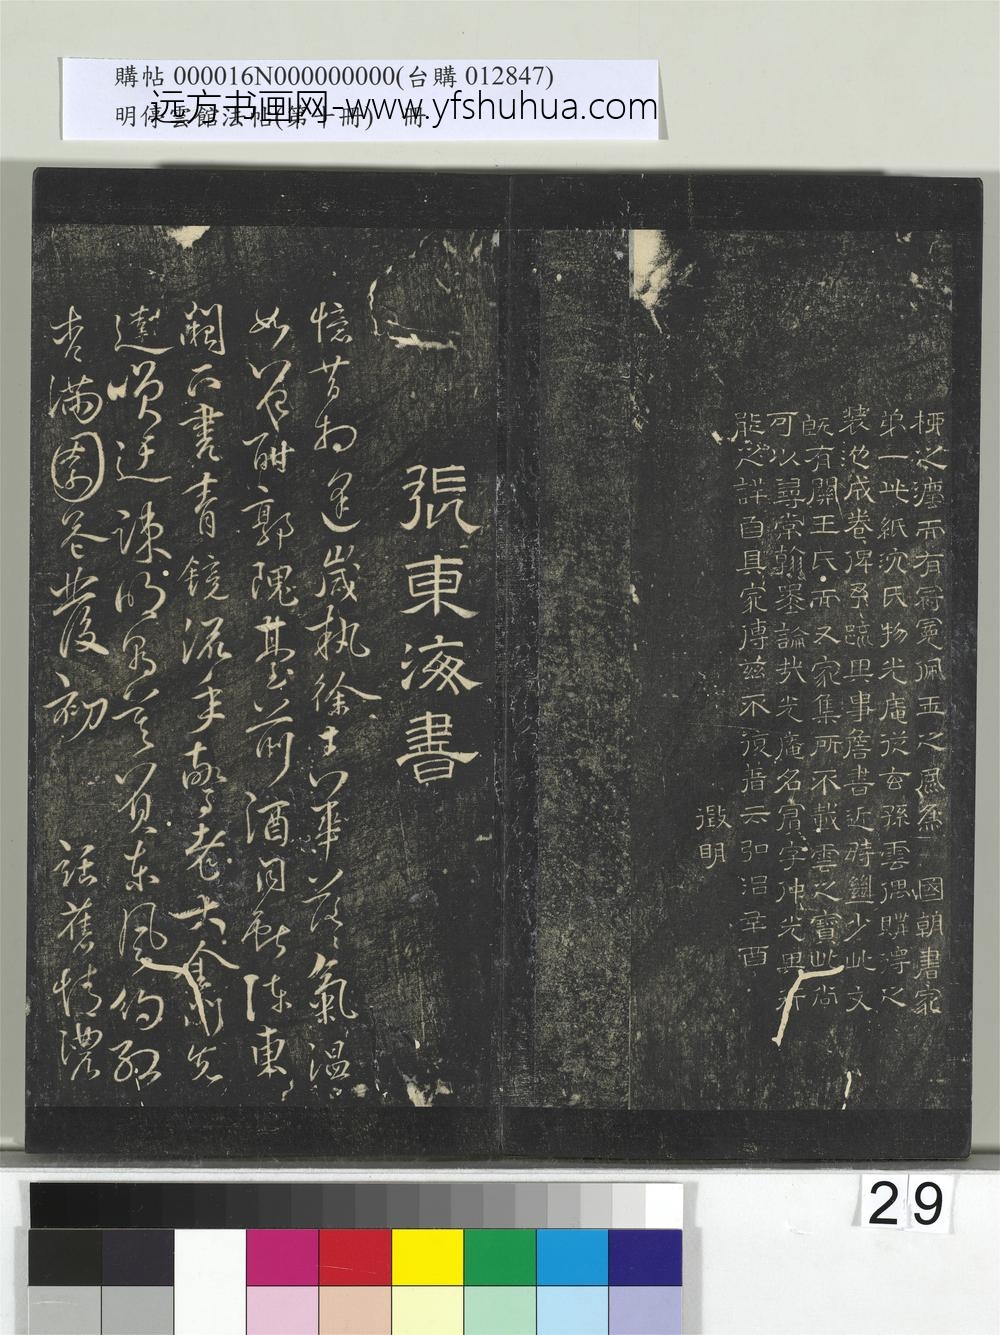 購帖 000016N000000000(台購 012847)
明停雲館法帖(第十冊) 冊
远方书画网-www.yfshuhua.com
極之瀍而有冠冕佩玉之風為 國朝書家
第一此紙沈氏物光庵從玄孫雲偶購得之
装池成卷俾予疏其事詹書近時鑒少此文
既有關王氏而又家集所不載雲之寶此尚
可以尋常翰墨論哉光庵名賓字仲光其行
能之詳自具家傳茲不復指云弘治辛酉
徵明
張東海書
憶昔相逢歲執徐士華落氣溫
如前酣郭隗臺前酒同獻陳東
闕下書青鏡流年驚老大金門先
達嘆迂疎明年又負東風約紅
杏滿園花發初
話舊情濃
29